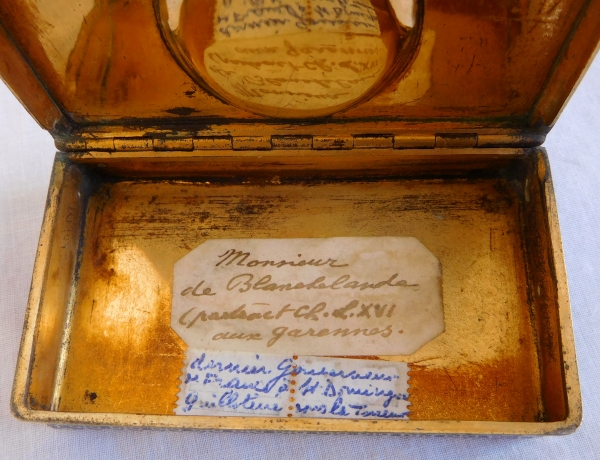 Monsieur
de Blanchelande
Ch. L. XVI
aux garennes.
dernier Gouverneur
de France à St Domingue
Guillotiné sous la Terreur